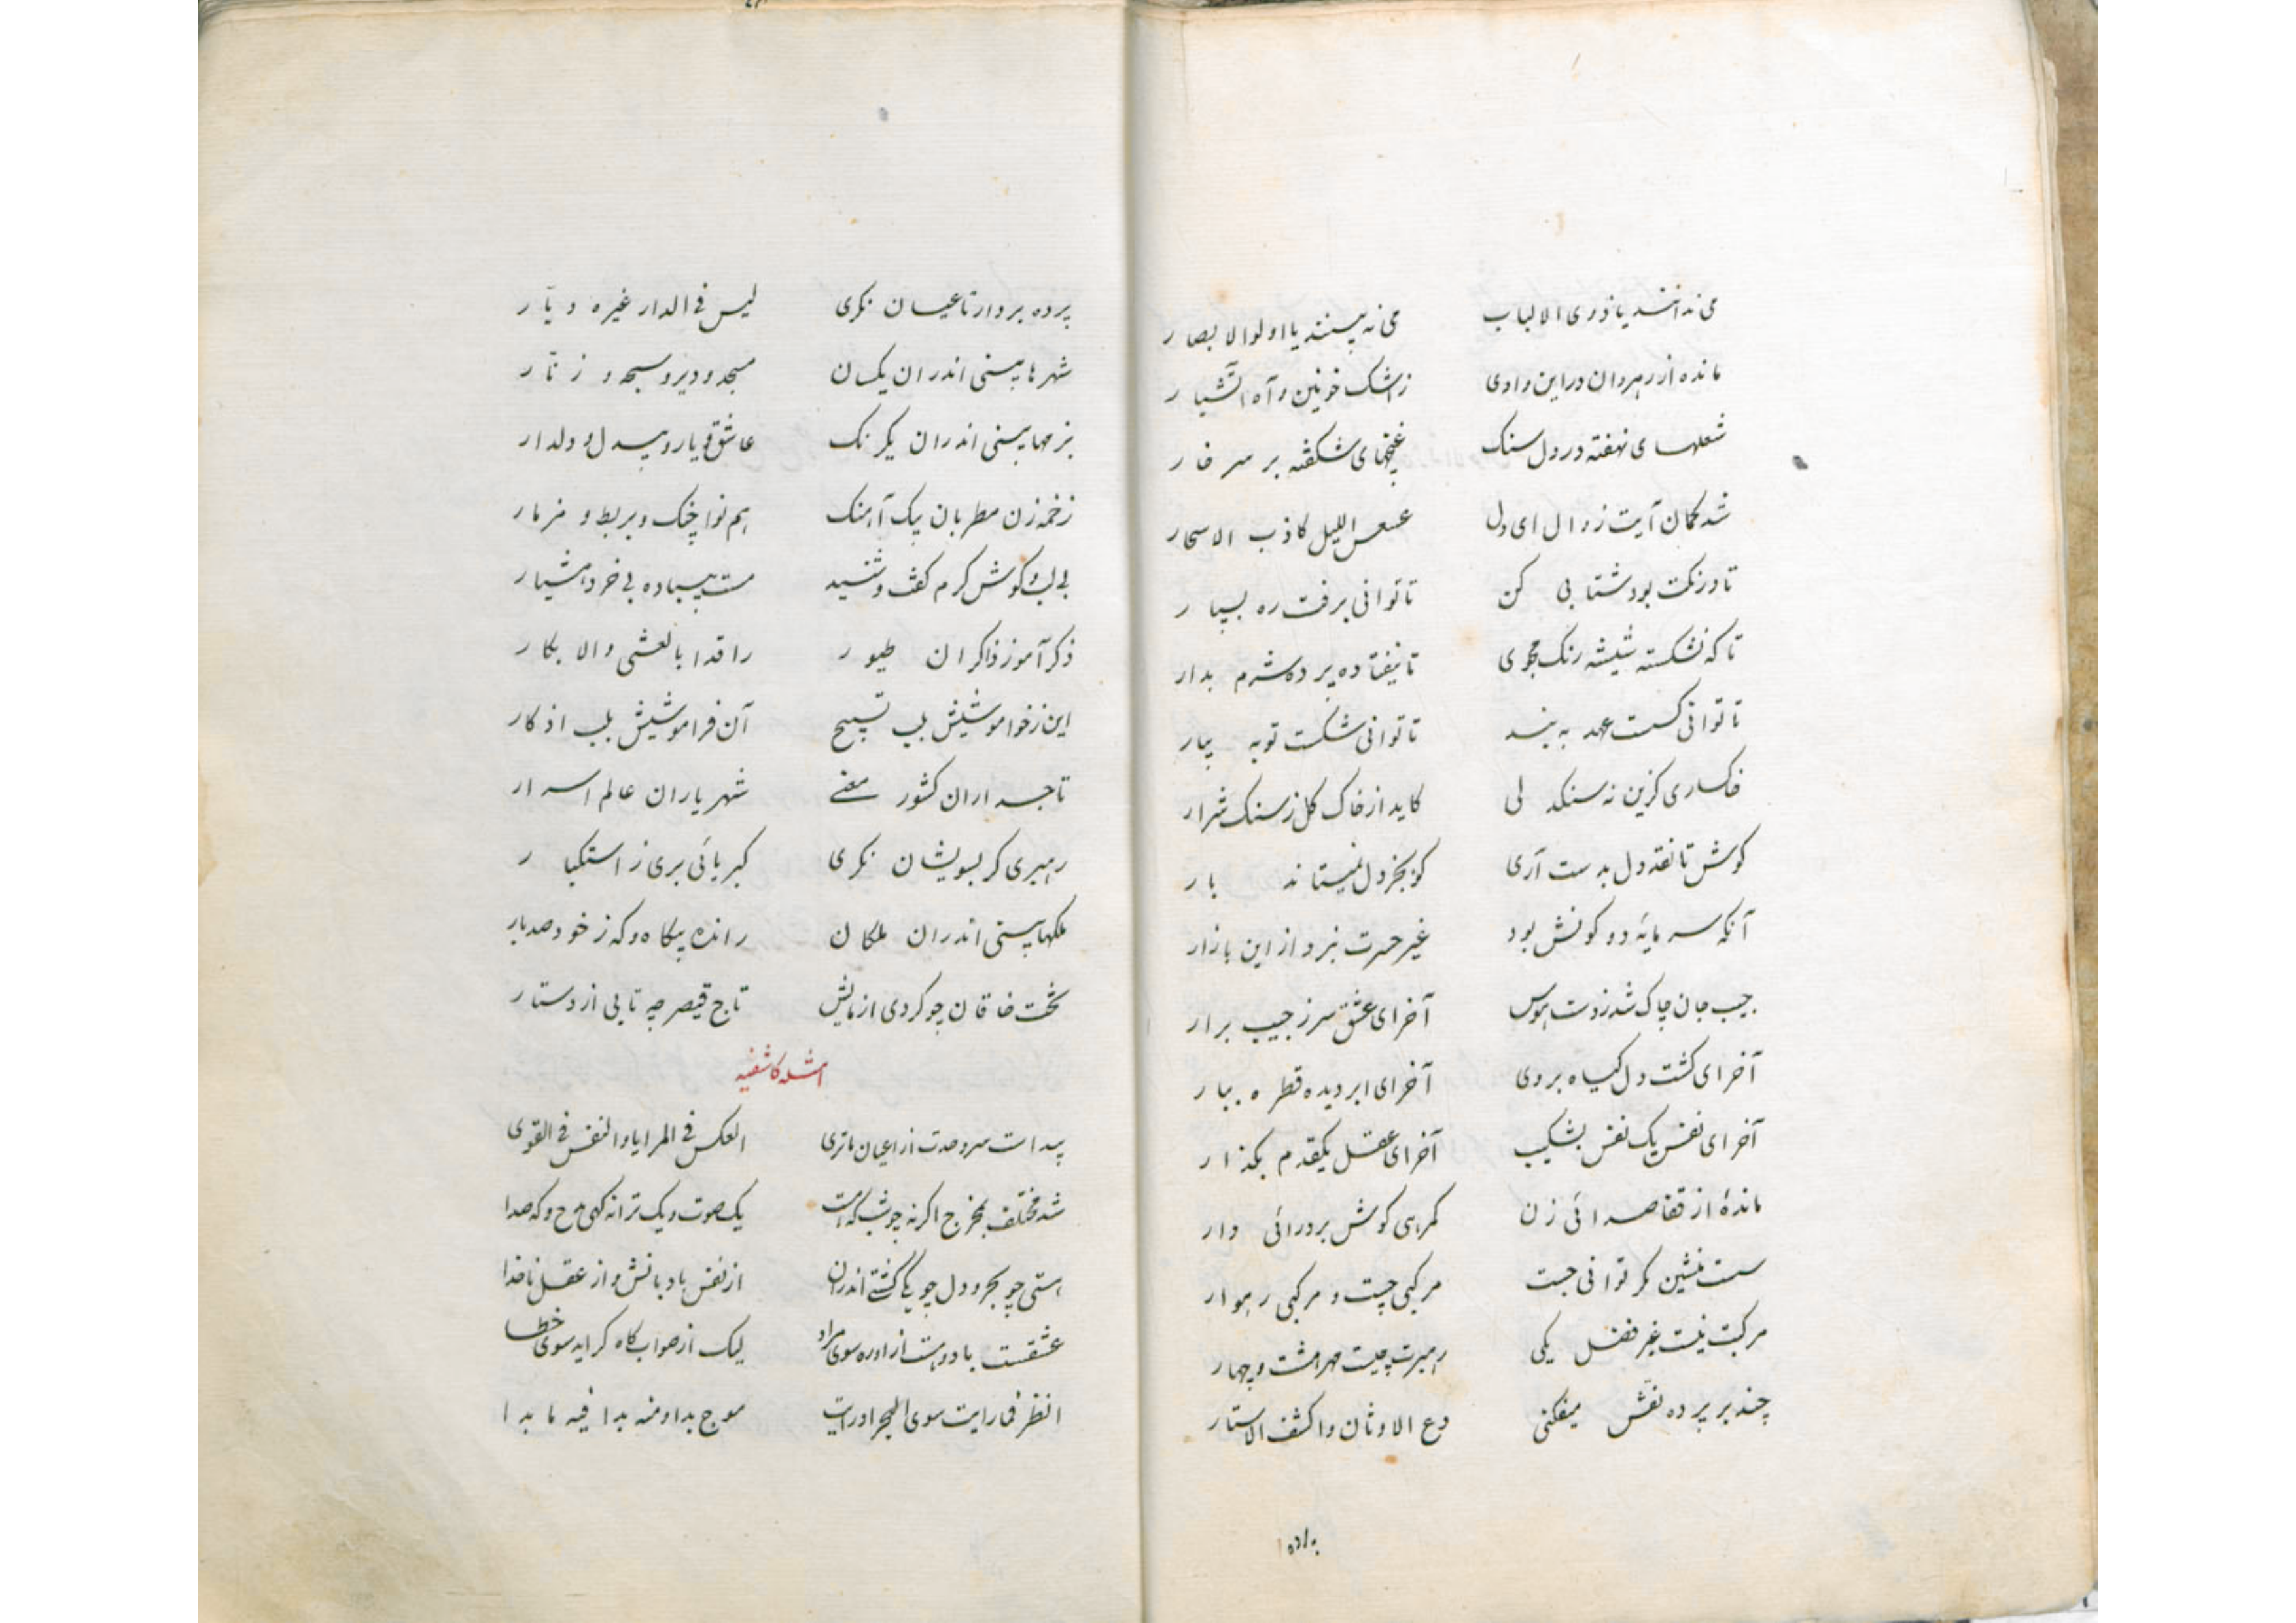 می ندانند یا ذوی الالباب می نه بینند یا اولوا لابصار
مانده از رهروان در این وادی ز اشک خونین و آه آتشبار
شعلهای نهفته در دل سنک غنچهای شکفته بر سر خار
شد کمان آیت زوال ای دل عسعس اللیل کاذب الاسحار
تا درنکت بود شتابی کن تا توانی برفت ره بسپار
تا که نشکسته شیشه رنک مجوی تا نیفتاده پرده شرم بدار
تا توانی کسست عهد به بند تا توانی شکست توبه بیار
خاکساری کزین نه سنکدلی کاید از خاک کل ز سنک شرار
کوش تا نقد دل بدست آری کو بجز دل نمیستاند بار
آنکه سرمایه دو کونش بود غیر حسرت نبرد از این بازار
جیب جان چاک شد ز دست هوس آخر ای عشق سر ز جیب برار
آخر ای کشت دل کیاه بروی آخر ای ابر دیده قطره ببار
آخر ای نفس یک نفس بشکیب آخر ای عقل یکقدم بگذار
ماندهٔ از قفا صدائی زن کمرهی کوش بر درائی دار
سست منشین کر توانی جست مرکبی چست و مرکبی رهوار
مرکبت نیست غیر فضل یکی رهبرت چیست مهر هشت و چهار
چند بر پرده نقش میفکنی دع الاوثان واکشف الاستار
پرده
پرده بردار تا عیان نکری لیس فی الدار غیره دیّار
شهرها بینی اندران یکسان مسجد و دیر و سبحه و زنّار
بزمها بینی اندران یکرنک عاشق و یار و بیدل و دلدار
زخمه زن مطربان یک آهنک هم نوا چنک و بربط و مزمار
بی لب و کوش کرم کفت و شنید مست بیباده بی خرد هشیار
ذکر آموز ذاکران طیور راقدا بالعشی والابکار
این ز خواموشیش بلب تسبیح آن فراموشیش بلب اذکار
تاجداران کشور معنی شهریاران عالم اسرار
رهبری کر بسویشان نکری کبریائی بری ز استکبار
ملکها بینی اندران ملکان رانده بیکاه و که ز خود صد بار
تخت خاقان چو کردی از بالش تاج قیصر چه تابی از دستار
امثله کاشفیه
پیداست سر وحدت از اعیان ما تری العکس فی المرایا والنفس فی القوی
شد مختلف بمخرج اکر نه چو شبکه است یک صوت و یک ترانه کهی مدح و که صدا
هستی چو بحر و دل چو یکی کشتی اندران از نفس بادبانش و از عقل ناخدا
عشقست باد و هست از او ره سوی مراد لیک از صواب کاه کراید سوی خطا
انظر فما رایت سوی البحر اذ رایت موج بدا ومنه بدا فیه ما بدا